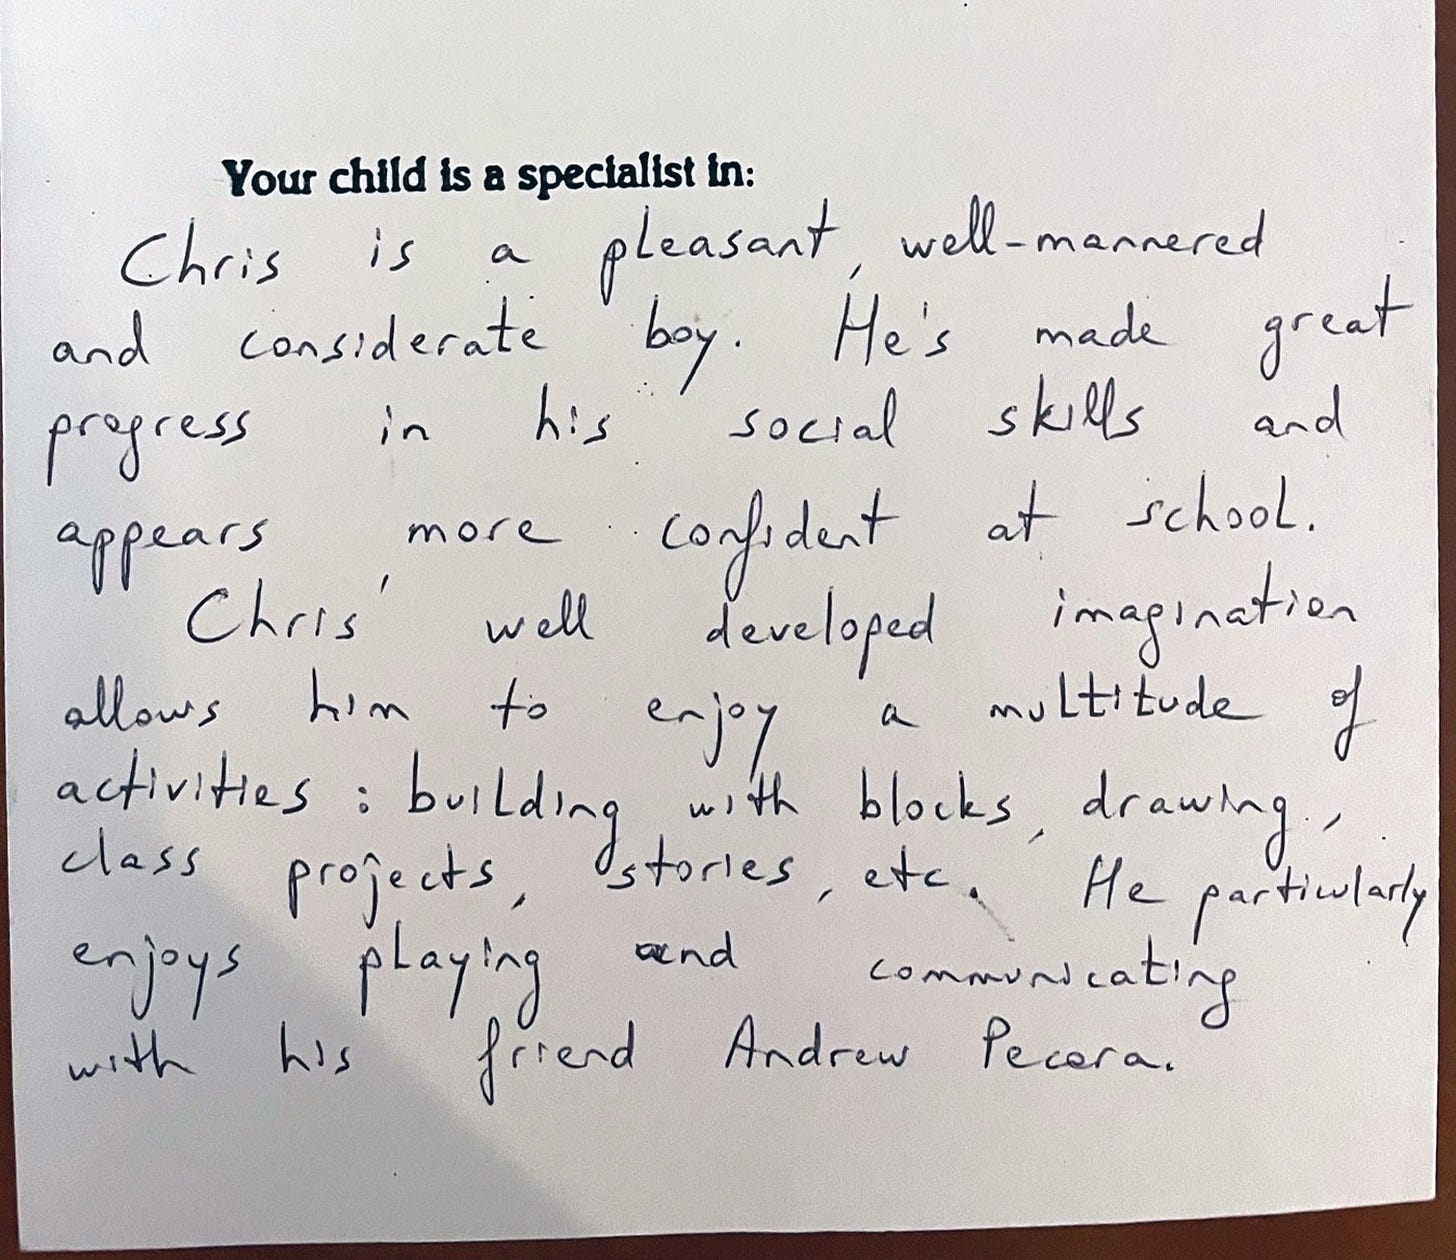 Your child is a specialist in:
Chris is a pleasant, well-mannered
and considerate boy. He's made great
progress in his social skills and
appears more confident at school.
Chris' well developed imagination
allows him to enjoy a multitude of
activities: building with blocks, drawing,
class projects, stories, etc. He particularly
enjoys playing and communicating
with his friend Andrew Pecora.